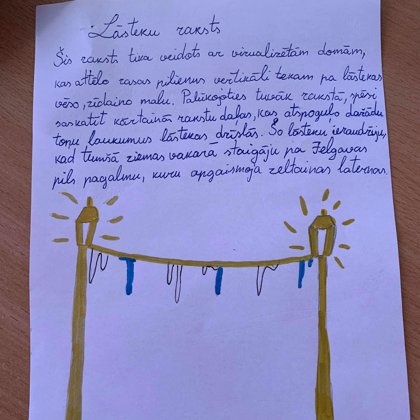 Lāsteku raksts
Šis raksts tika veidots ar vizualizētām domām,
kas attēlo rasas pilienus vertikāli tekam pa lāstekas
vēso, rīdaino malu. Palūkojoties tuvāk rakstā, spēsi
saskatīt kārtainā rakstu daļas, kas atspoguļo dažādu
toņu laukumus lāstekas drīslās. Šo lāsteku ieraudzīju,
kad tumšā ziemas vakarā staigāju pa Jelgavas
pils pagalmu, kuru apgaismoja zeltainas laternas.